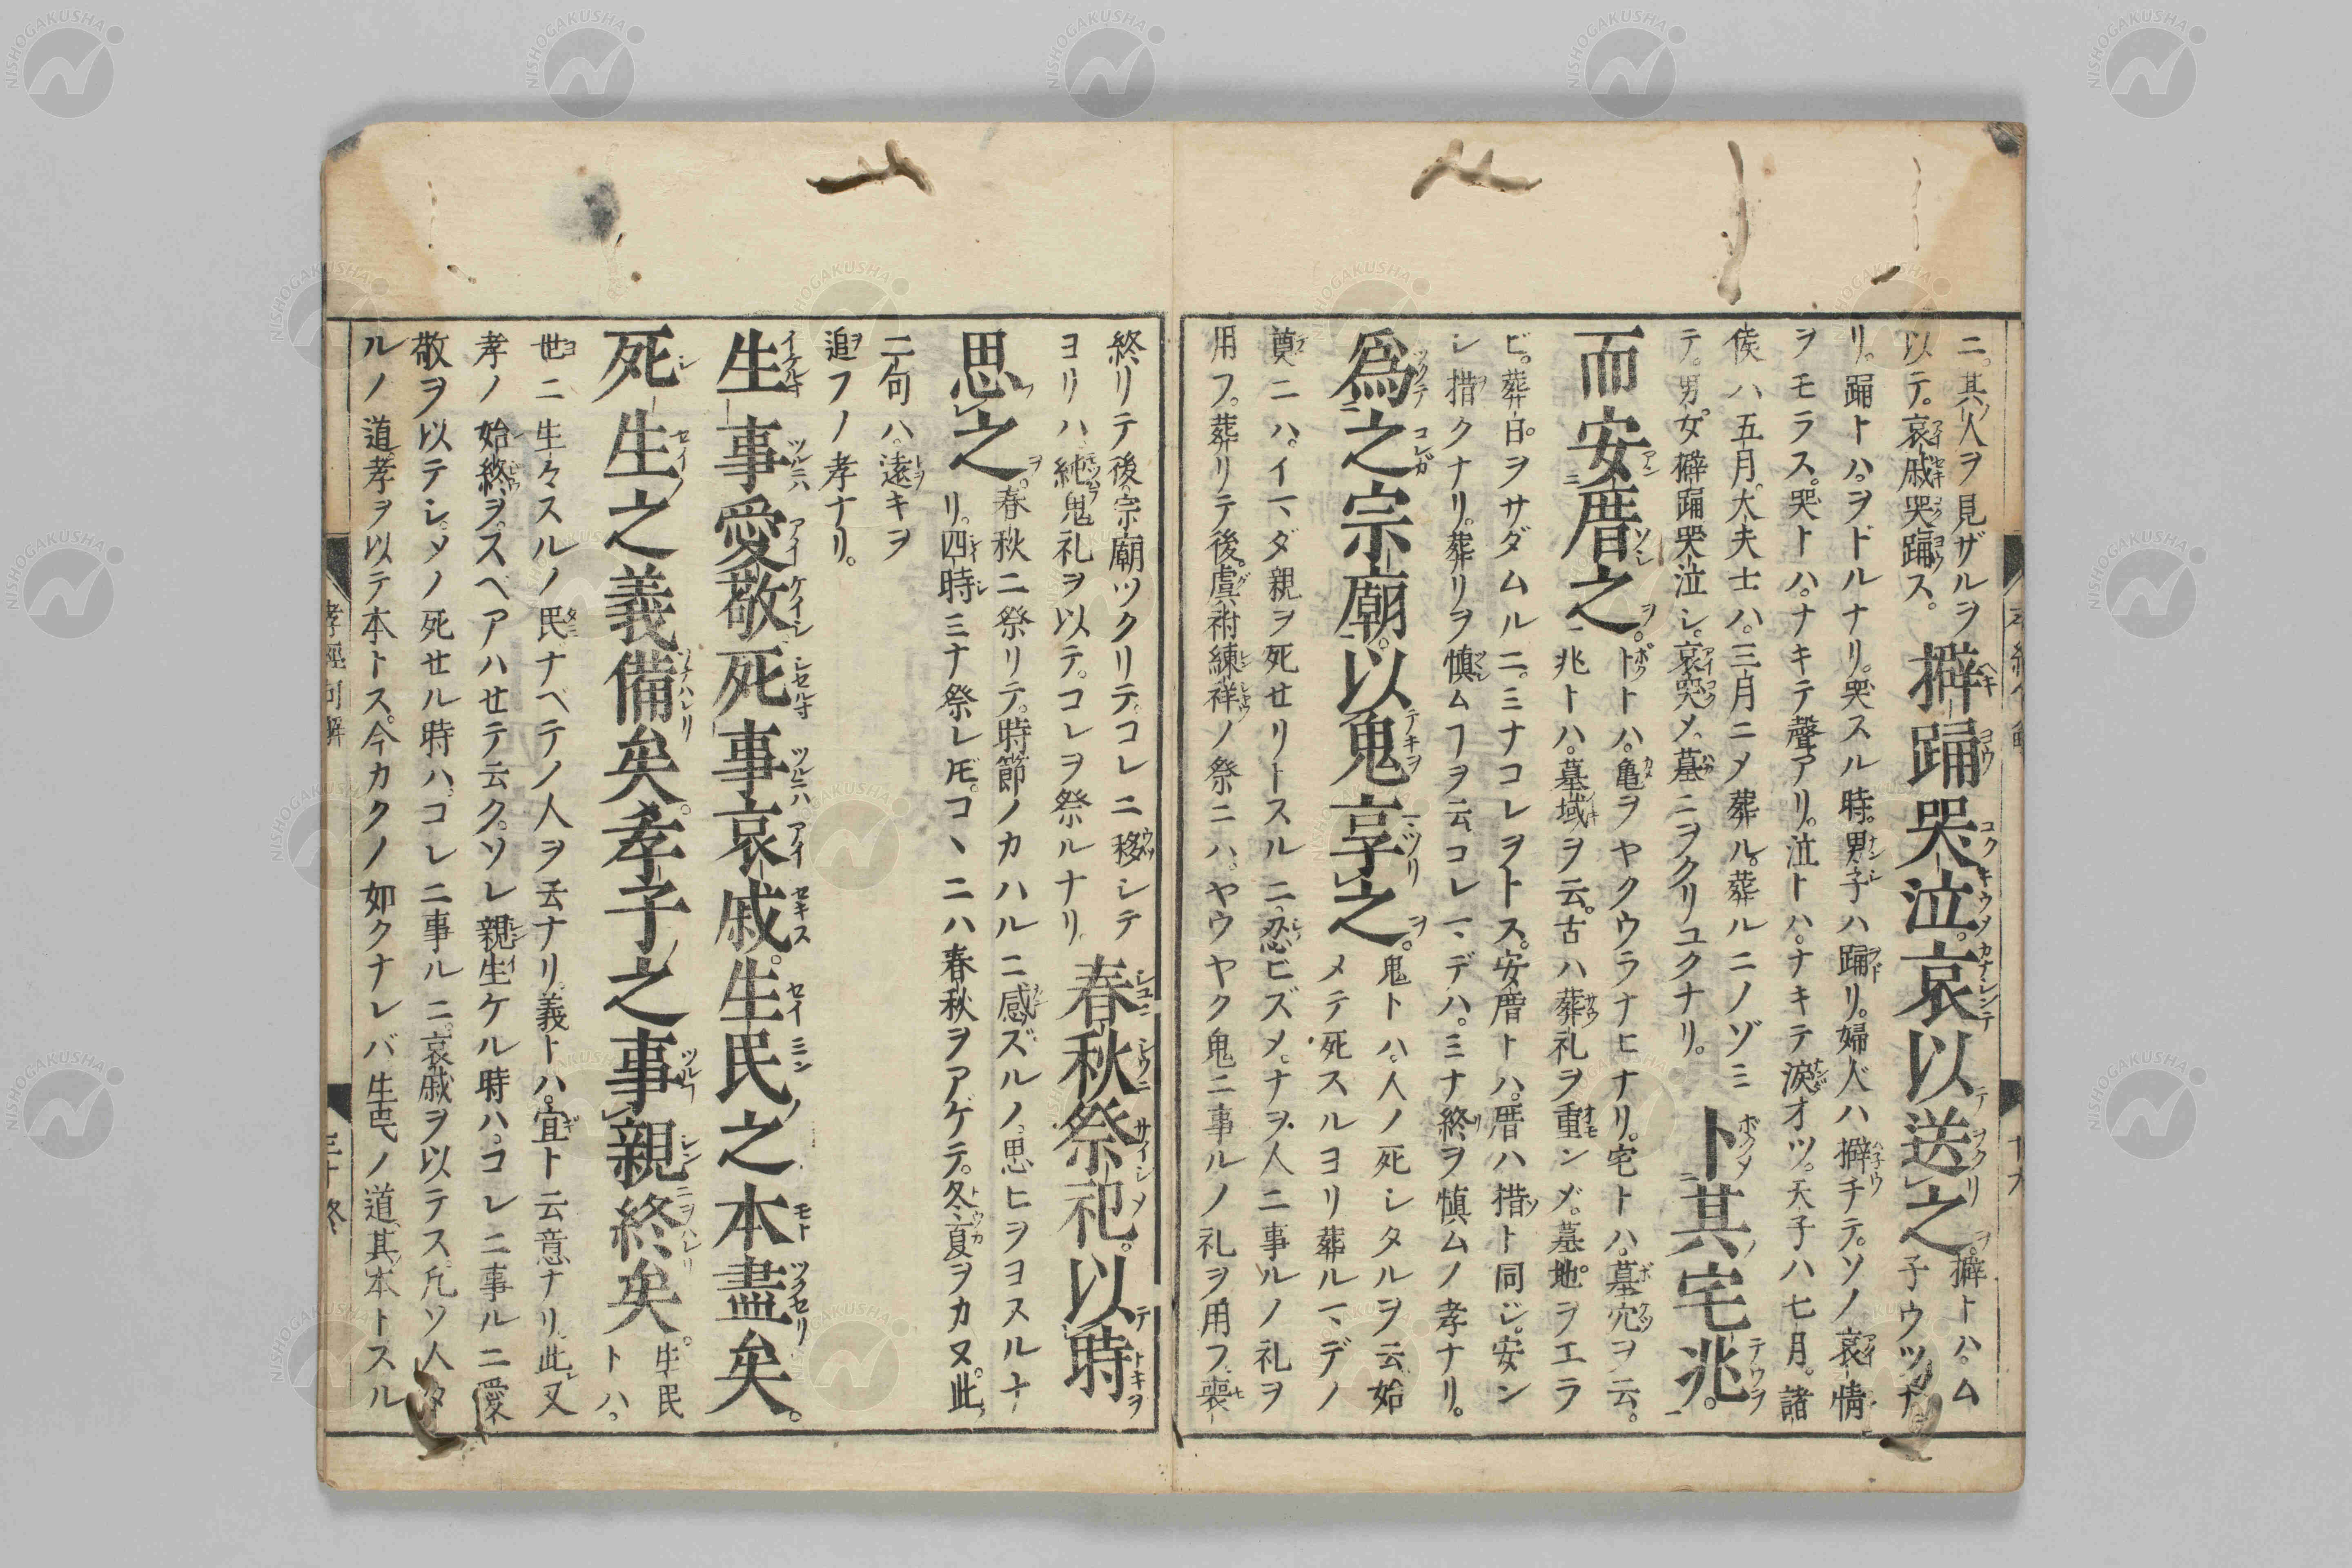 ニ。其人ヲ見ザルヲ
以テ。哀戚哭踊ス。
擗踊哭泣。哀以送之。
擗トハ。ム
子ウツナ
リ。踊トハ。ヲドルナリ。哭スル時。男子ハ踊リ。婦人ハ擗チテ。ソノ哀情
ヲモラス。哭トハ。ナキテ聲アリ。泣トハ。ナキテ淚オツ。天子ハ七月。諸
侯ハ五月。大夫士ハ。三月ニメ葬ル。葬ルニノゾミ
テ。男女擗踊哭泣シ。哀哭メ。墓ニヲクリユクナリ。
卜其宅兆。
而安厝之。
卜トハ。亀ヲヤクウラナヒナリ。宅トハ。墓穴ヲ云。
兆トハ。墓域ヲ云。古ハ葬礼ヲ重ンメ。墓地ヲエラ
ビ。葬日ヲサダムルニ。ミナコレヲトス。安厝トハ。厝ハ措ト同ジ。安ン
シ措クナリ。葬リヲ慎ムフヲ云。コレマデハ。ミナ終ヲ慎ムノ孝ナリ。
爲之宗廟。以鬼享之。
鬼トハ。人ノ死シタルヲ云。始
メテ死スルヨリ葬ルマデノ
奠ニハ。イマダ親ヲ死セリトスルニ。忍ビズメ。ナヲ人ニ事ルノ礼ヲ
用フ。葬リテ後。虞祔練祥ノ祭ニハ。ヤウヤク鬼ニ事ルノ礼ヲ用フ。喪
終リテ後。宗廟ツクリテ。コレニ移シテ
ヨリハ。純鬼礼ヲ以テ。コレヲ祭ルナリ
春秋祭祀。以時
思之。
春秋ニ祭リテ。時節ノカハルニ感ズルノ。思ヒヲヨスルナ
リ。四時ミナ祭レ𪜈。コヽニハ春秋ヲアゲテ。冬夏ヲカヌ。此
二句ハ。遠キヲ
追フノ孝ナリ。
生事愛敬。死事哀戚。生民之本盡矣。
死生之義備矣。孝子之事親終矣。
生民
トハ。
世ニ生々スルノ民ナベテノ人ヲ云ナリ。義トハ。宜ト云意ナリ。此又
孝ノ始終ヲ。スベアハセテ云ク。ソレ親生ケル時ハ。コレニ事ルニ愛
敬ヲ以テシ。メノ死セル時ハ。コレニ事ルニ。哀戚ヲ以テス。凡ソ人タ
ルノ道。孝ヲ以テ本トス。今カクノ如クナレバ生民ノ道。其本トスル